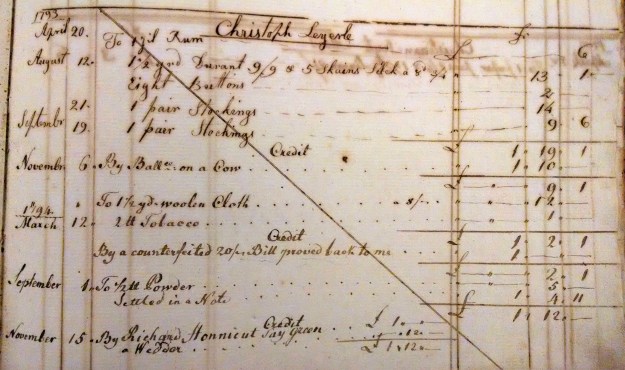 1793 Christoph Leyerle
April 20. To 1 gil Rum 6
August 12. 1½ yrd Durant 9/9 & 5 Skains Silk a 13 1
Eight Buttons 2
21. 1 pair Stockings 14
Septembr 19. 1 pair Stockings 9 6
£ 1 19 1
Credit
Novembr 6. By Ballce. on a Cow 1 10
£ 9 1
" To 1½ yd. woolen Cloth " 8/- 12
1794
March 12. 2 lb Tobacco 1
£ 1 2 1
Credit
By a counterfeited 20/- Bill proved back to me 1
£ 2 1
September 1. To ½ lb Powder 5
Settled in a Note 1 4 11
£ 1 12
Credit
November 15. By Richard Honnicut £ 1
a Wedder 12
£ 1 12